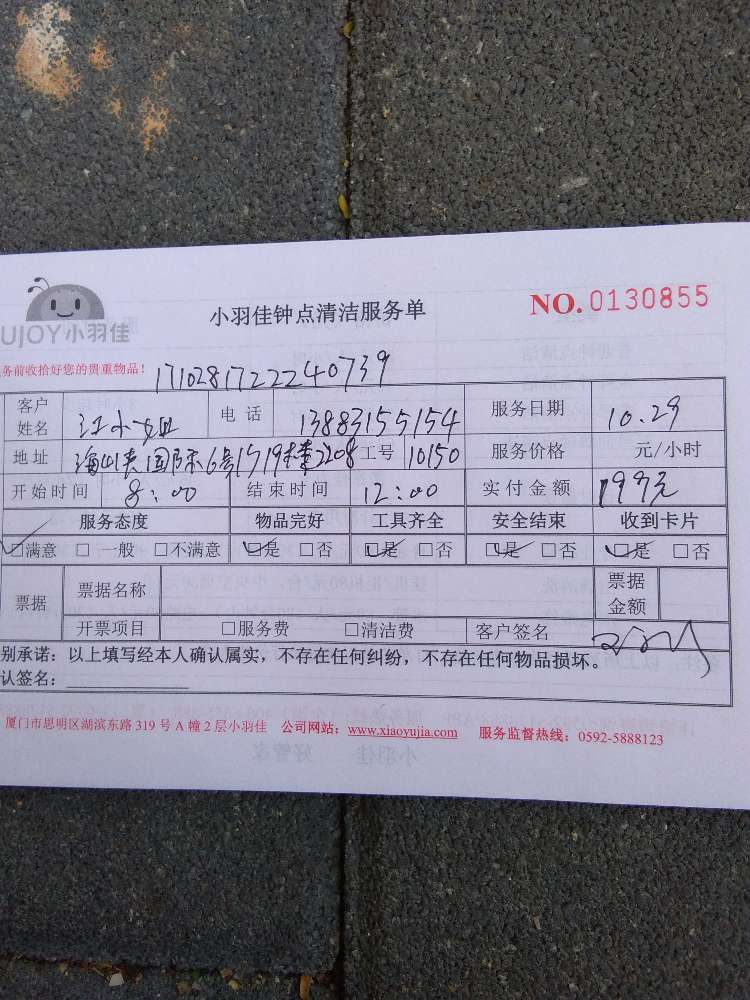 UJOY小羽佳
小羽佳钟点清洁服务单
NO.0130855
务前收拾好您的贵重物品!
1710281722240739
客户姓名 江小姐 电话 13883155154 服务日期 10.29
地址 海峡国际6号1719楼2208 工号 10150 服务价格 元/小时
开始时间 8:00 结束时间 12:00 实付金额 199元
服务态度 物品完好 工具齐全 安全结束 收到卡片
☑满意 □ 一般 □不满意 ☑是 □否 ☑是 □否 ☑是 □否 ☑是 □否
票据 票据名称 票据金额
开票项目 □服务费 □清洁费 客户签名
别承诺：以上填写经本人确认属实，不存在任何纠纷，不存在任何物品损坏。
认签名：
厦门市思明区湖滨东路 319 号 A 幢 2 层小羽佳 公司网站：www.xiaoyujia.com 服务监督热线：0592-5888123